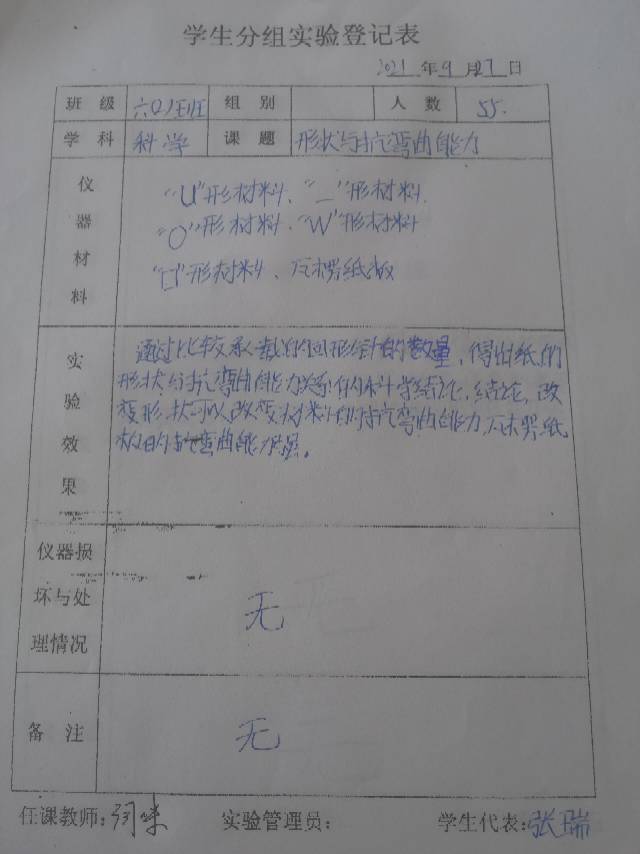 学生分组实验登记表
2021 年 9 月 27 日
班级 六(2)班班 组别 人数 55.
学科 科学 课题 形状与抗弯曲能力
仪器材料
"U"形材料、"一"形材料.
"O"形材料、"W"形材料
"口"形材料、瓦楞纸板
实验效果
通过比较承载的回形针的数量,得出纸的
形状与抗弯曲能力关系的科学结论,结论,改
变形状可以改变材料的抗弯曲能力,瓦楞纸
板的抗弯曲能力
仪器损
坏与处
理情况
无
备注 无
任课教师: 实验管理员: 学生代表:张瑞